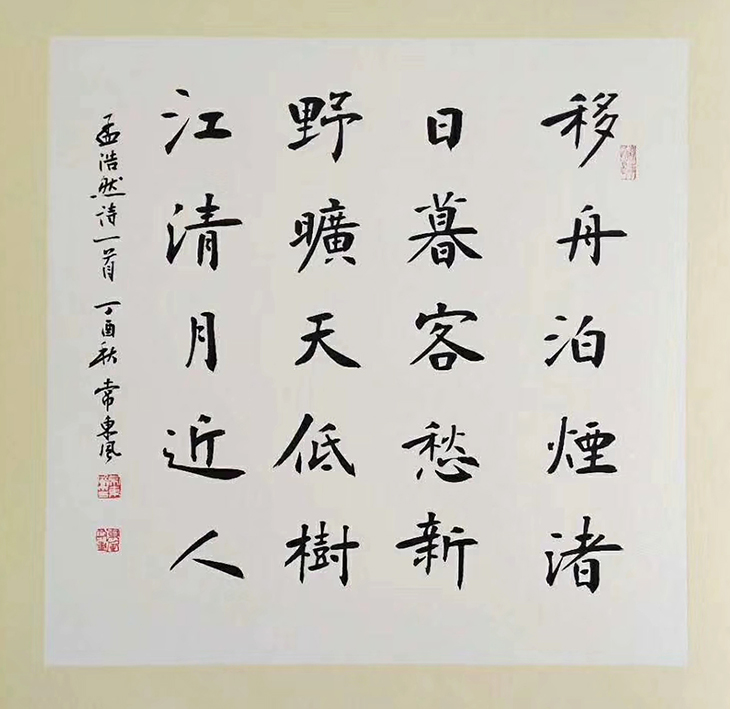 移舟泊煙渚
日暮客愁新
野曠天低樹
江清月近人
孟浩然诗一首 丁酉秋 常東风